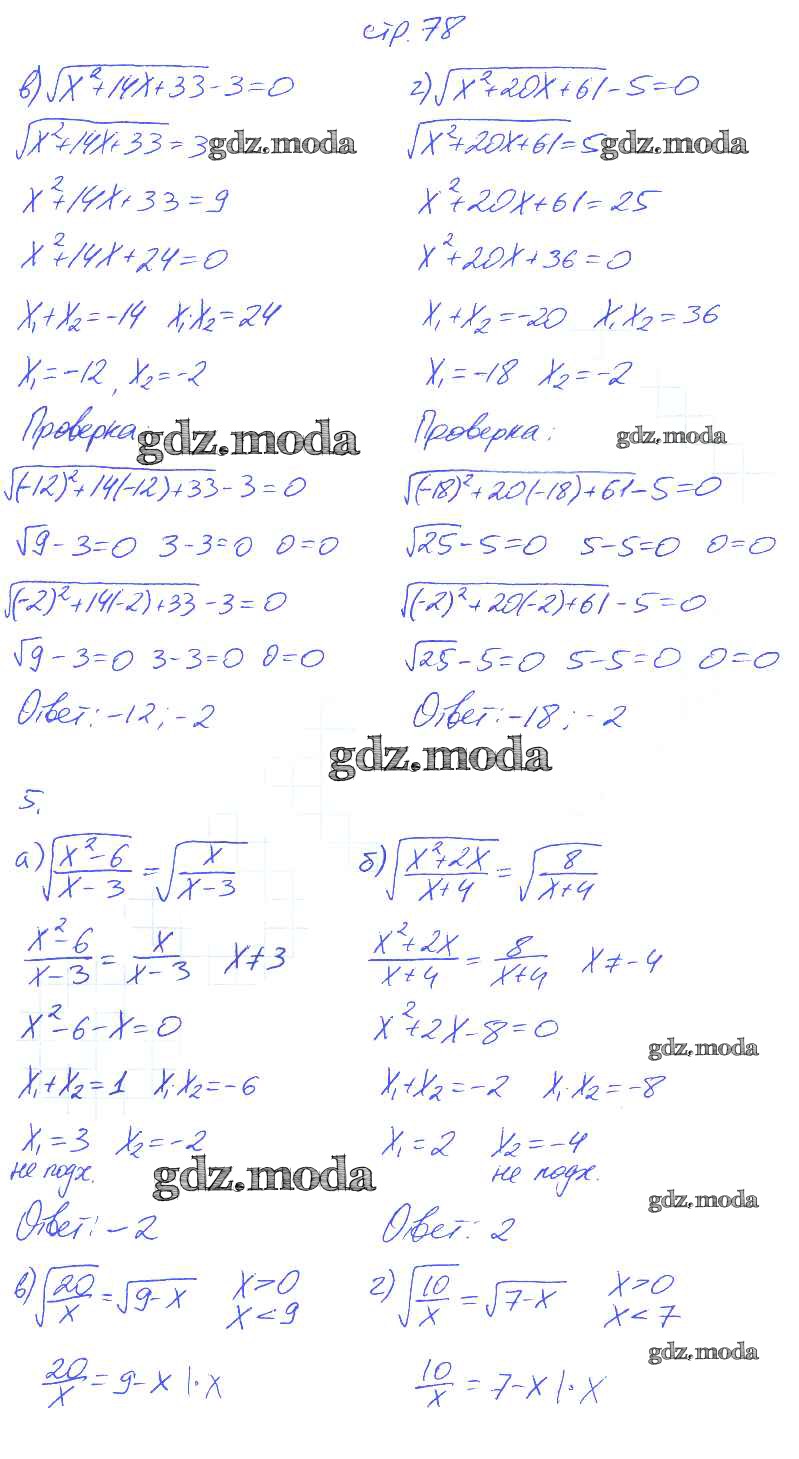 стр. 78
в) √(x²+14x+33) - 3 = 0
√(x²+14x+33) = 3
gdz.moda
x²+14x+33 = 9
x²+14x+24 = 0
x₁+x₂ = -14   x₁·x₂ = 24
x₁ = -12, x₂ = -2
Проверка:
gdz.moda
√((-12)²+14(-12)+33) - 3 = 0
√9 - 3 = 0   3-3=0   0=0
√((-2)²+14(-2)+33) - 3 = 0
√9 - 3 = 0   3-3=0   0=0
Ответ: -12; -2
г) √(x²+20x+61) - 5 = 0
√(x²+20x+61) = 5
gdz.moda
x²+20x+61 = 25
x²+20x+36 = 0
x₁+x₂ = -20   x₁x₂ = 36
x₁ = -18   x₂ = -2
Проверка:
gdz.moda
√((-18)²+20(-18)+61) - 5 = 0
√25 - 5 = 0   5-5=0   0=0
√((-2)²+20(-2)+61) - 5 = 0
√25 - 5 = 0   5-5=0   0=0
Ответ: -18; -2
gdz.moda
5.
а) √((x²-6)/(x-3)) = √(x/(x-3))
(x²-6)/(x-3) = x/(x-3)   x≠3
x²-6-x = 0
x₁+x₂ = 1   x₁·x₂ = -6
x₁ = 3   x₂ = -2
не подх.
gdz.moda
Ответ: -2
б) √((x²+2x)/(x+4)) = √(8/(x+4))
(x²+2x)/(x+4) = 8/(x+4)   x≠-4
x²+2x-8 = 0
gdz.moda
x₁+x₂ = -2   x₁·x₂ = -8
x₁ = 2   x₂ = -4
не подх.
gdz.moda
Ответ: 2
в) √(20/x) = √(9-x)   x>0
x<9
20/x = 9-x |·x
г) √(10/x) = √(7-x)   x>0
x<7
gdz.moda
10/x = 7-x |·x